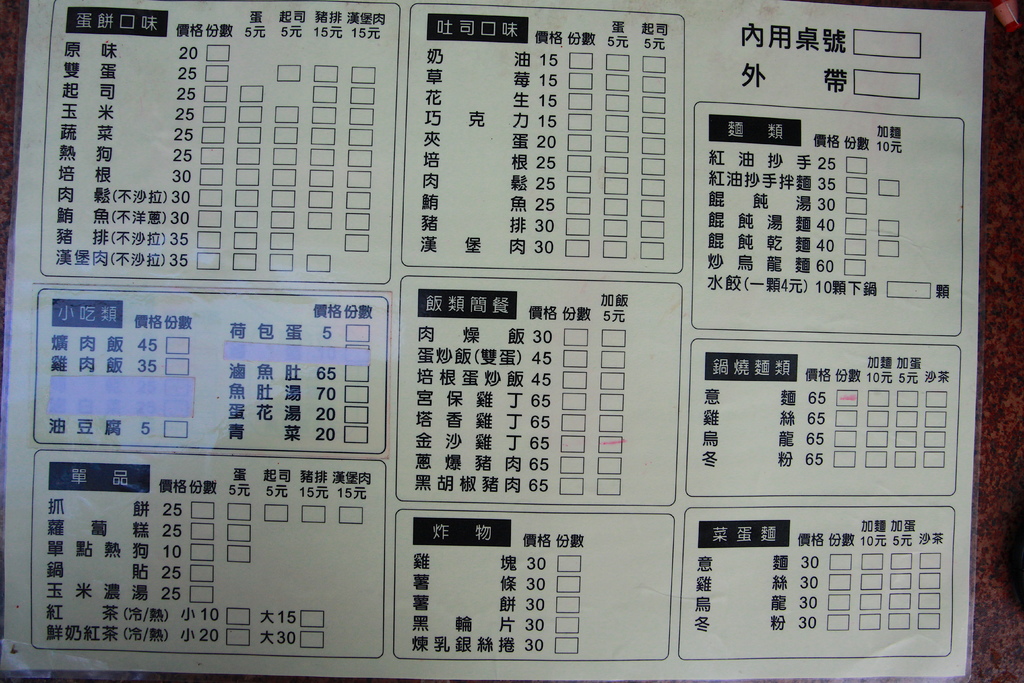 蛋餅口味 價格 份數 蛋5元 起司5元 豬排15元 漢堡肉15元
原味 20
雙蛋 25
起司 25
玉米 25
蔬菜 25
熱狗 25
培根 30
肉鬆(不沙拉) 30
鮪魚(不洋蔥) 30
豬排(不沙拉) 35
漢堡肉(不沙拉) 35
小吃類 價格 份數
爌肉飯 45
雞肉飯 35
油豆腐 5
價格 份數
荷包蛋 5
滷魚肚 65
魚肚湯 70
蛋花湯 20
青菜 20
單品 價格 份數 蛋5元 起司5元 豬排15元 漢堡肉15元
抓餅 25
蘿蔔糕 25
單點熱狗 10
鍋貼 25
玉米濃湯 25
紅茶(冷/熱) 小10 大15
鮮奶紅茶(冷/熱) 小20 大30
吐司口味 價格 份數 蛋5元 起司5元
奶油 15
草莓 15
花生 15
巧克力 15
夾蛋 20
培根 25
肉鬆 25
鮪魚 25
豬排 30
漢堡肉 30
飯類簡餐 價格 份數 加飯5元
肉燥飯 30
蛋炒飯(雙蛋) 45
培根蛋炒飯 45
宮保雞丁 65
塔香雞丁 65
金沙雞丁 65
蔥爆豬肉 65
黑胡椒豬肉 65
炸物 價格 份數
雞塊 30
薯條 30
薯餅 30
黑輪片 30
煉乳銀絲捲 30
內用桌號
外帶
麵類 價格 份數 加麵10元
紅油抄手 25
紅油抄手拌麵 35
餛飩湯 30
餛飩湯麵 40
餛飩乾麵 40
炒烏龍麵 60
水餃(一顆4元) 10顆下鍋 顆
鍋燒麵類 價格 份數 加麵10元 加蛋5元 沙茶
意麵 65
雞絲 65
烏龍 65
冬粉 65
菜蛋麵 價格 份數 加麵10元 加蛋5元 沙茶
意麵 30
雞絲 30
烏龍 30
冬粉 30